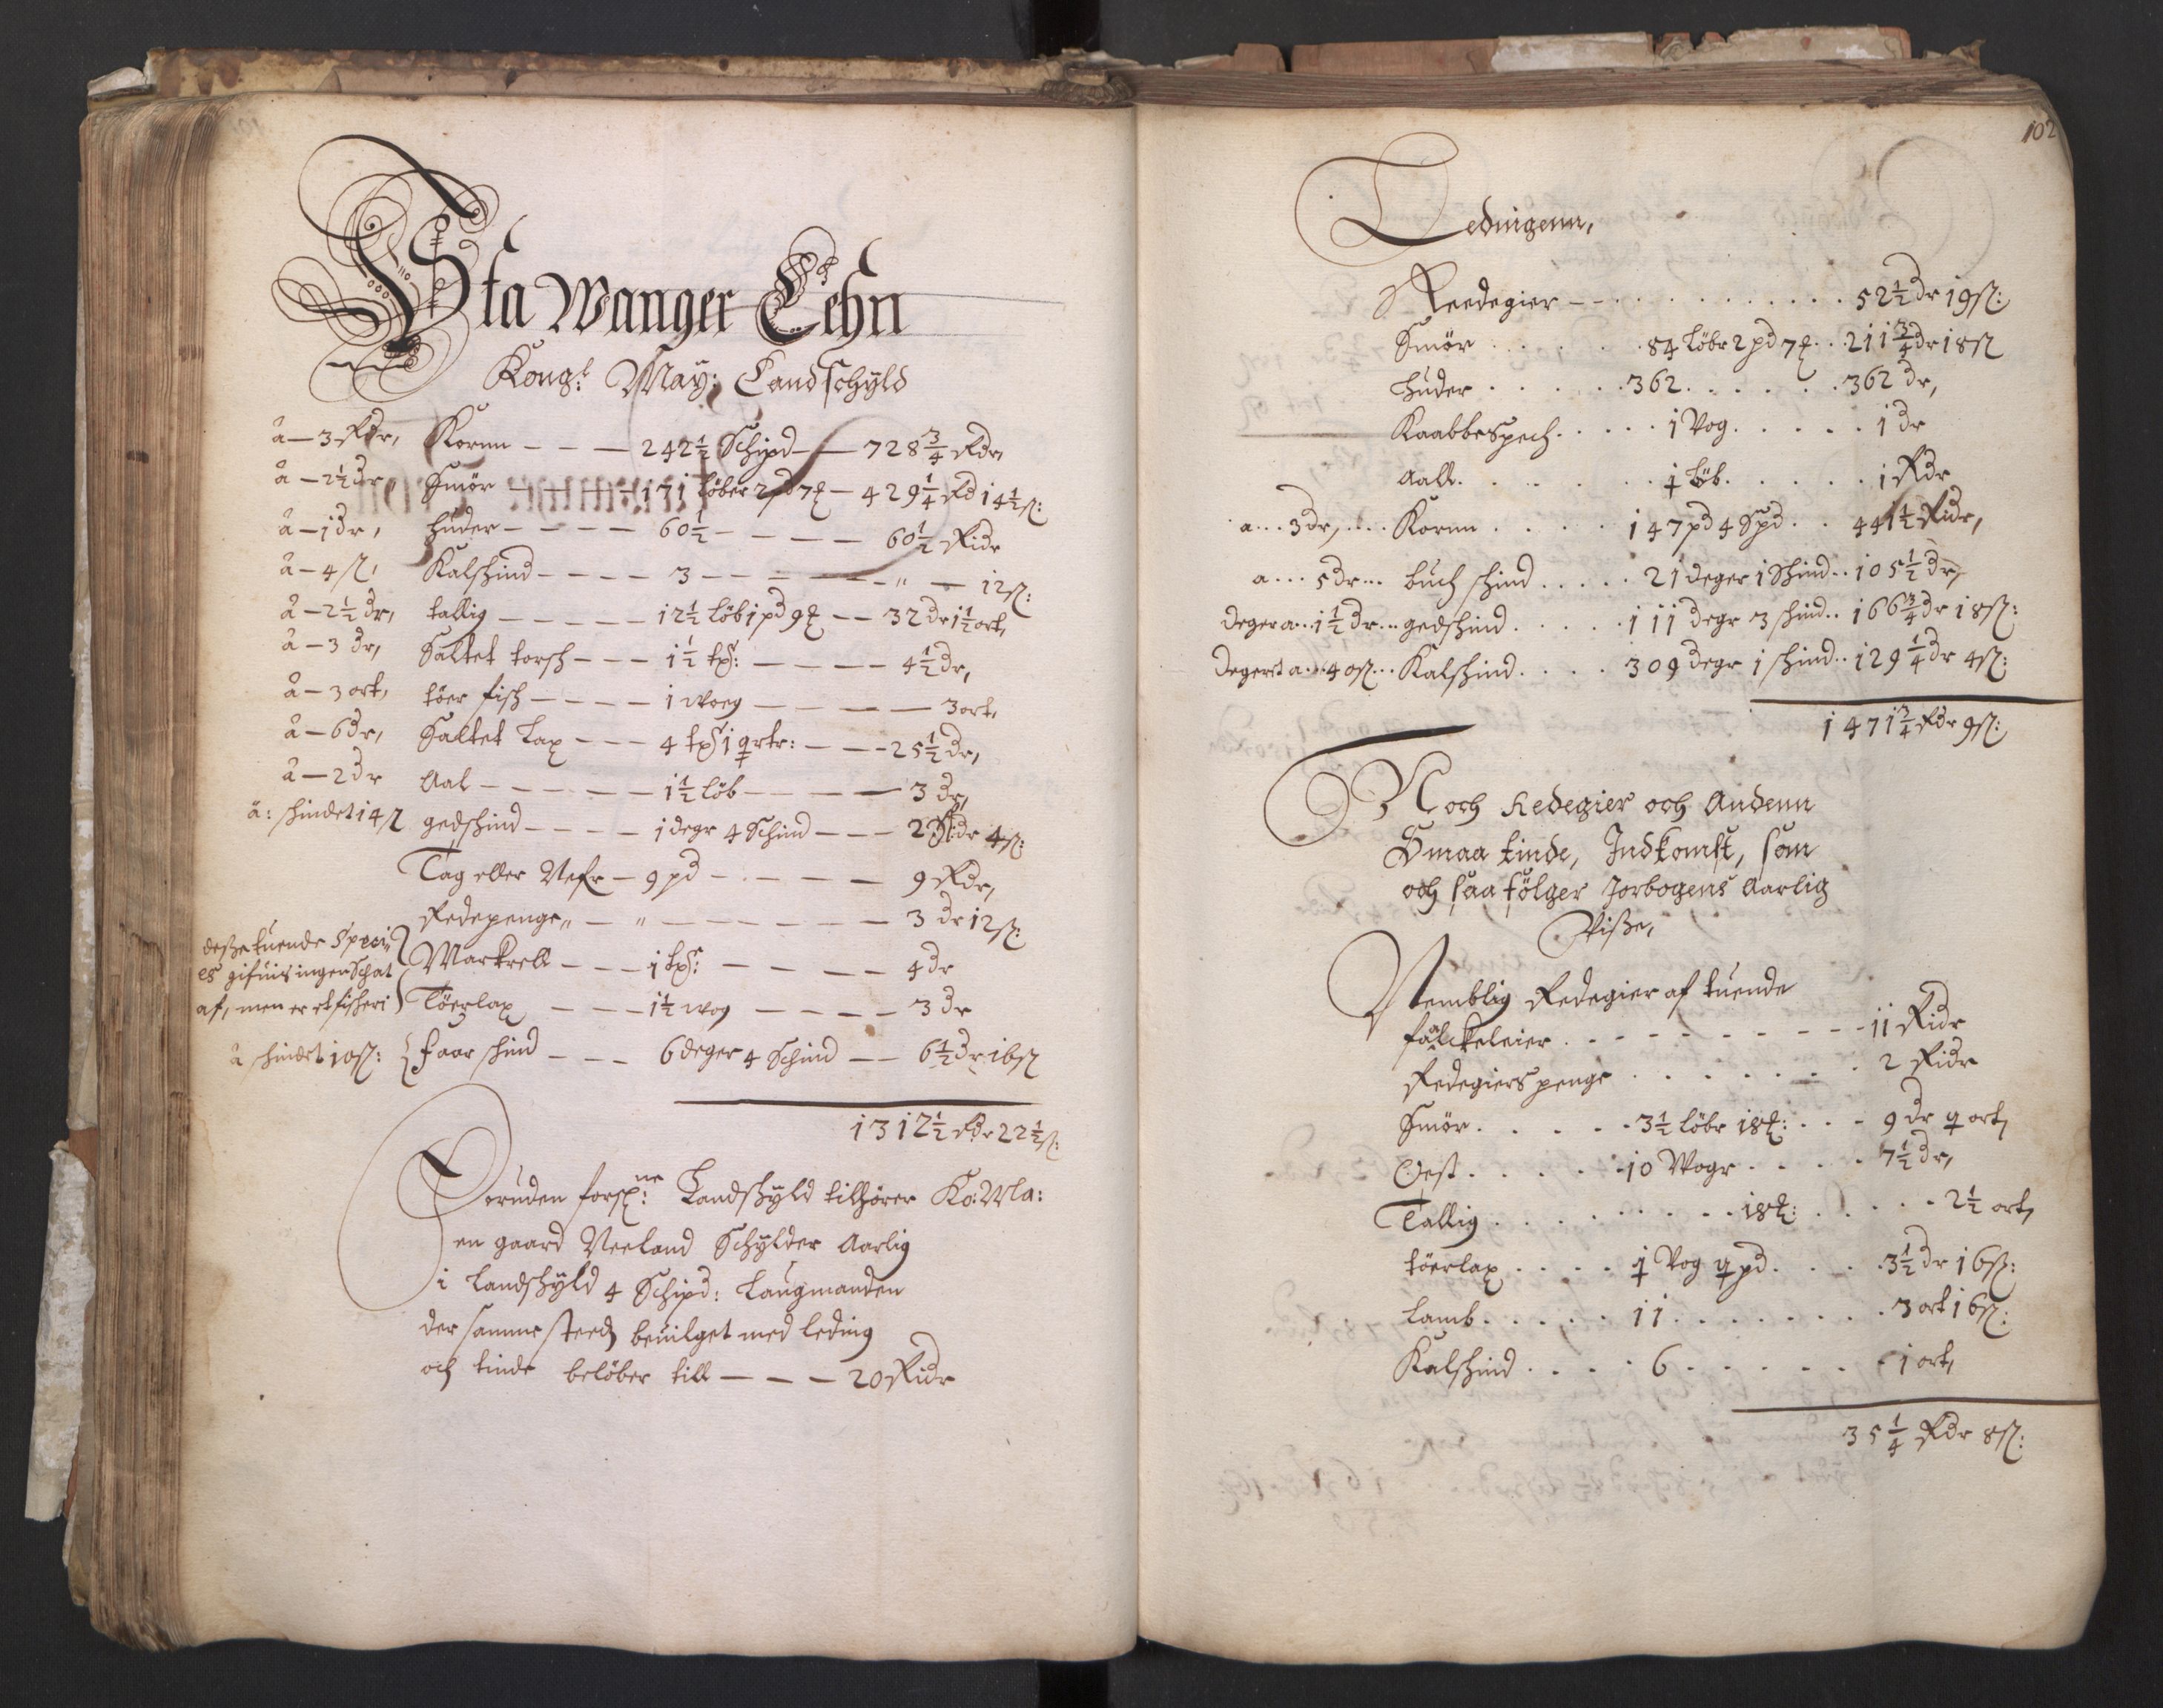 Sta Wanger Lehn
Kong: May: Landschyld
å — 3 Rdr, Kornn — — — 242½ Schpd — — 728¾ Rdr,
å — 2½ dr, Smör — — — 171 Löber 2 pd 7 ℔ — 429¼ Rd 14½ ß:
å — 1 dr, huder — — — — 60½ — — — — 60½ Ridr
å — 4 ß, Kalfskind — — — — 3 — — — — „ — 12 ß:
å — 2½ dr, tallig — — — — 12½ löb 1 pd 9 ℔ — — 32 dr 1½ ort,
å — 3 dr, Saltet torsch — — — 1½ tß: — — — — 4½ dr,
å — 3 ort, töer fisch — — — — 1 woeg — — — — 3 ort,
å — 6 dr, Saltet Lax — — — 4 tß 1 qrtr: — — — 25½ dr,
å — 2 dr Aal — — — — — 1½ löb — — — — 3 dr,
å: skindet 14 ß gedskind — — — — 1 degr 4 Schind — — — 2 Ridr 4 ß:
Tag eller Nefr — 9 pd — — — — 9 Rdr,
Redepenge „ — „ — — — — — 3 dr 12 ß:
desße tuende Speci„
es gifuis ingen Schat
af, men er et fischeri
Markrell — — — 1 tß: — — — — 4 dr
Töerlax — — — 1½ wog — — — — 3 dr
å skindet 10 ß: faar skind — — — 6 deger 4 Schind — — 6½ dr 16 ß
1312½ Rdr 22½ ß:
Foruden forsp:ne Landskyld tilhörer Ko: Ma:
en gaard Neeland Schylder Aarlig
i Landskyld 4 Schipd: Laugmanden
der samme steedz beuilget med leding
och tinde belöber till — — — 20 Ridr
102
Ledingenn,
Reedegier — — . . . . . . . . 52½ dr 19 ß:
Smör . . . . . 84 Löbr 2 pd 7 ℔ . . 211¾ dr 18 ß
huder . . . . . 362 . . . . . . 362 dr,
Kaabbespech . . . . . 1 Vog . . . . . 1 dr
Aall . . . . . . ½ löb . . . . . 1 Rdr
a . . . 3 dr, . . . Kornn . . . . 147 pd 4 Spd . . 441½ Ridr,
a . . . 5 dr . . . buch skind . . . . . 21 deger 1 Schind . . 105½ dr,
deger a . . 1½ dr . . . gedskind . . . . . 111 degr 3 skind . . 166¾ dr 18 ß:
degert a . . . 40 ß . . . Kalfskind . . . . 309 degr 1 skind . . 129¼ dr 4 ß:
1471¾ Rdr 9 ß:
Noch Redegier och Andenn
Smaa tinde, Indkomst, som
och saa fölger Jorbogens Aarlig
Viße,
Nemblig Redegier af tuende
falckeleier . . . . . . . . . 11 Ridr
Redegiers penge . . . . . . . 2 Ridr
Smör . . . . . 3½ löbr 18 ℔: . . . 9 dr ½ ort,
Oest . . . . . . 10 Wogr . . . . 7½ dr,
Tallig . . . . . . . . . 18 ℔: . . . . . 2½ ort,
töerlax . . . . ½ Vog ½ pd . . . . 3½ dr 16 ß:
Lamb . . . . . 11 . . . . . . . 3 ort 16 ß:
Kalfskind . . . . 6 . . . . . . 1 ort,
35¼ Rdr 8 ß: